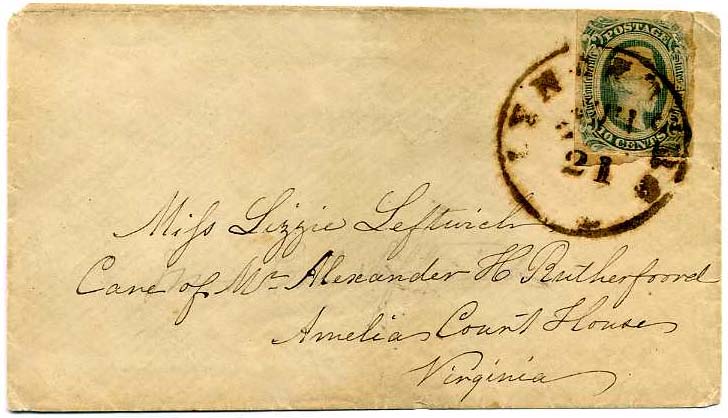 POSTAGE
The Confederate States of America
10 CENTS
LYNCHBURG
21
Miss Lizzie Leftwich
Care of Mr Alexander H Rutherfoord
Amelia Court House
Virginia